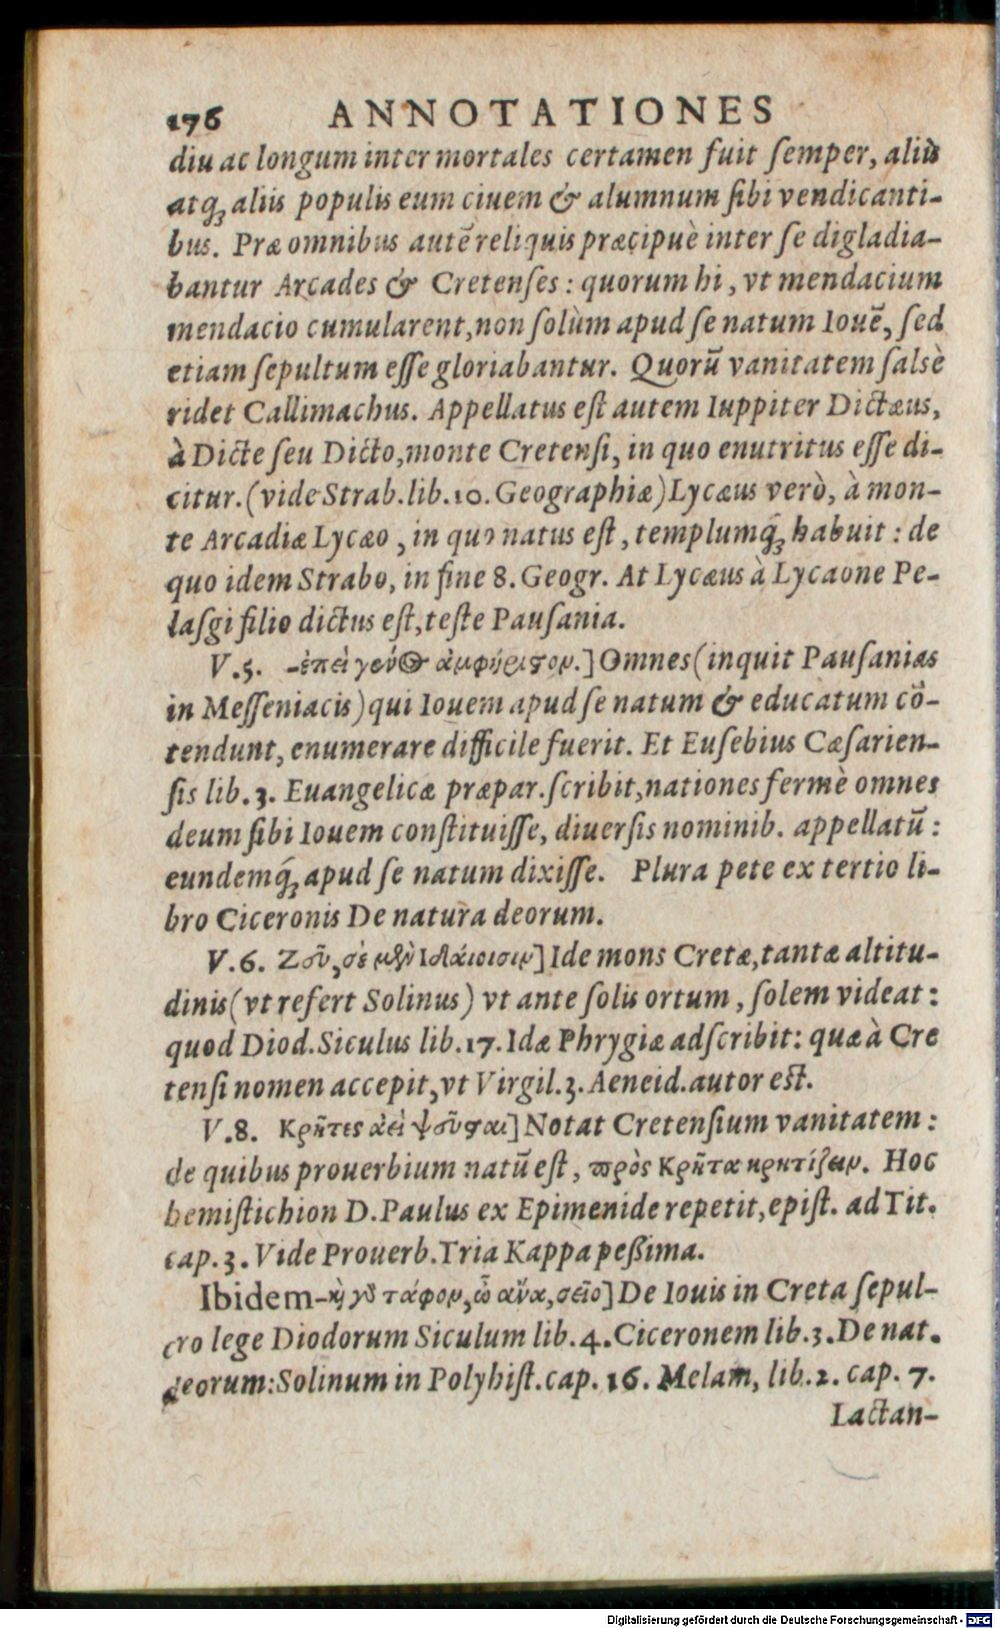 176 ANNOTATIONES
diu ac longum inter mortales certamen fuit semper, aliis
atq; aliis populis eum ciuem & alumnum sibi vendicanti-
bus. Præ omnibus autē reliquis præcipuè inter se digladia-
bantur Arcades & Cretenses: quorum hi, vt mendacium
mendacio cumularent, non solùm apud se natum Iouē, sed
etiam sepultum esse gloriabantur. Quorū vanitatem salsè
ridet Callimachus. Appellatus est autem Iuppiter Dictæus,
à Dicte seu Dicto, monte Cretensi, in quo enutritus esse di-
citur. (vide Strab. lib. 10. Geographiæ) Lycæus verò, à mon-
te Arcadiæ Lycæo, in quo natus est, templumq́; habuit: de
quo idem Strabo, in fine 8. Geogr. At Lycæus à Lycaone Pe-
lasgi filio dictus est, teste Pausania.
V.5. -ἐπεὶ γένος ἀμφήριστον.] Omnes (inquit Pausanias
in Messeniacis) qui Iouem apud se natum & educatum cō-
tendunt, enumerare difficile fuerit. Et Eusebius Cæsarien-
sis lib. 3. Euangelicæ præpar. scribit, nationes fermè omnes
deum sibi Iouem constituisse, diuersis nominib. appellatū:
eundemq́; apud se natum dixisse. Plura pete ex tertio li-
bro Ciceronis De natura deorum.
V.6. Ζεῦ, σὲ μὲν Ἰδαίοισιν] Ide mons Cretæ, tantæ altitu-
dinis (vt refert Solinus) vt ante solis ortum, solem videat:
quod Diod. Siculus lib. 17. Idæ Phrygiæ adscribit: quæ à Cre
tensi nomen accepit, vt Virgil. 3. Aeneid. autor est.
V.8. Κρῆτες ἀεὶ ψεῦσται] Notat Cretensium vanitatem:
de quibus prouerbium natū est, πρὸς Κρῆτα κρητίζειν. Hoc
hemistichion D. Paulus ex Epimenide repetit, epist. ad Tit.
cap. 3. Vide Prouerb. Tria Kappa peßima.
Ibidem -κỳ γδ τάφον, ὦ ἄνα, σεῖο] De Iouis in Creta sepul-
cro lege Diodorum Siculum lib. 4. Ciceronem lib. 3. De nat.
deorum: Solinum in Polyhist. cap. 16. Melam, lib. 2. cap. 7.
Lactan-
Digitalisierung gefördert durch die Deutsche Forschungsgemeinschaft - DFG